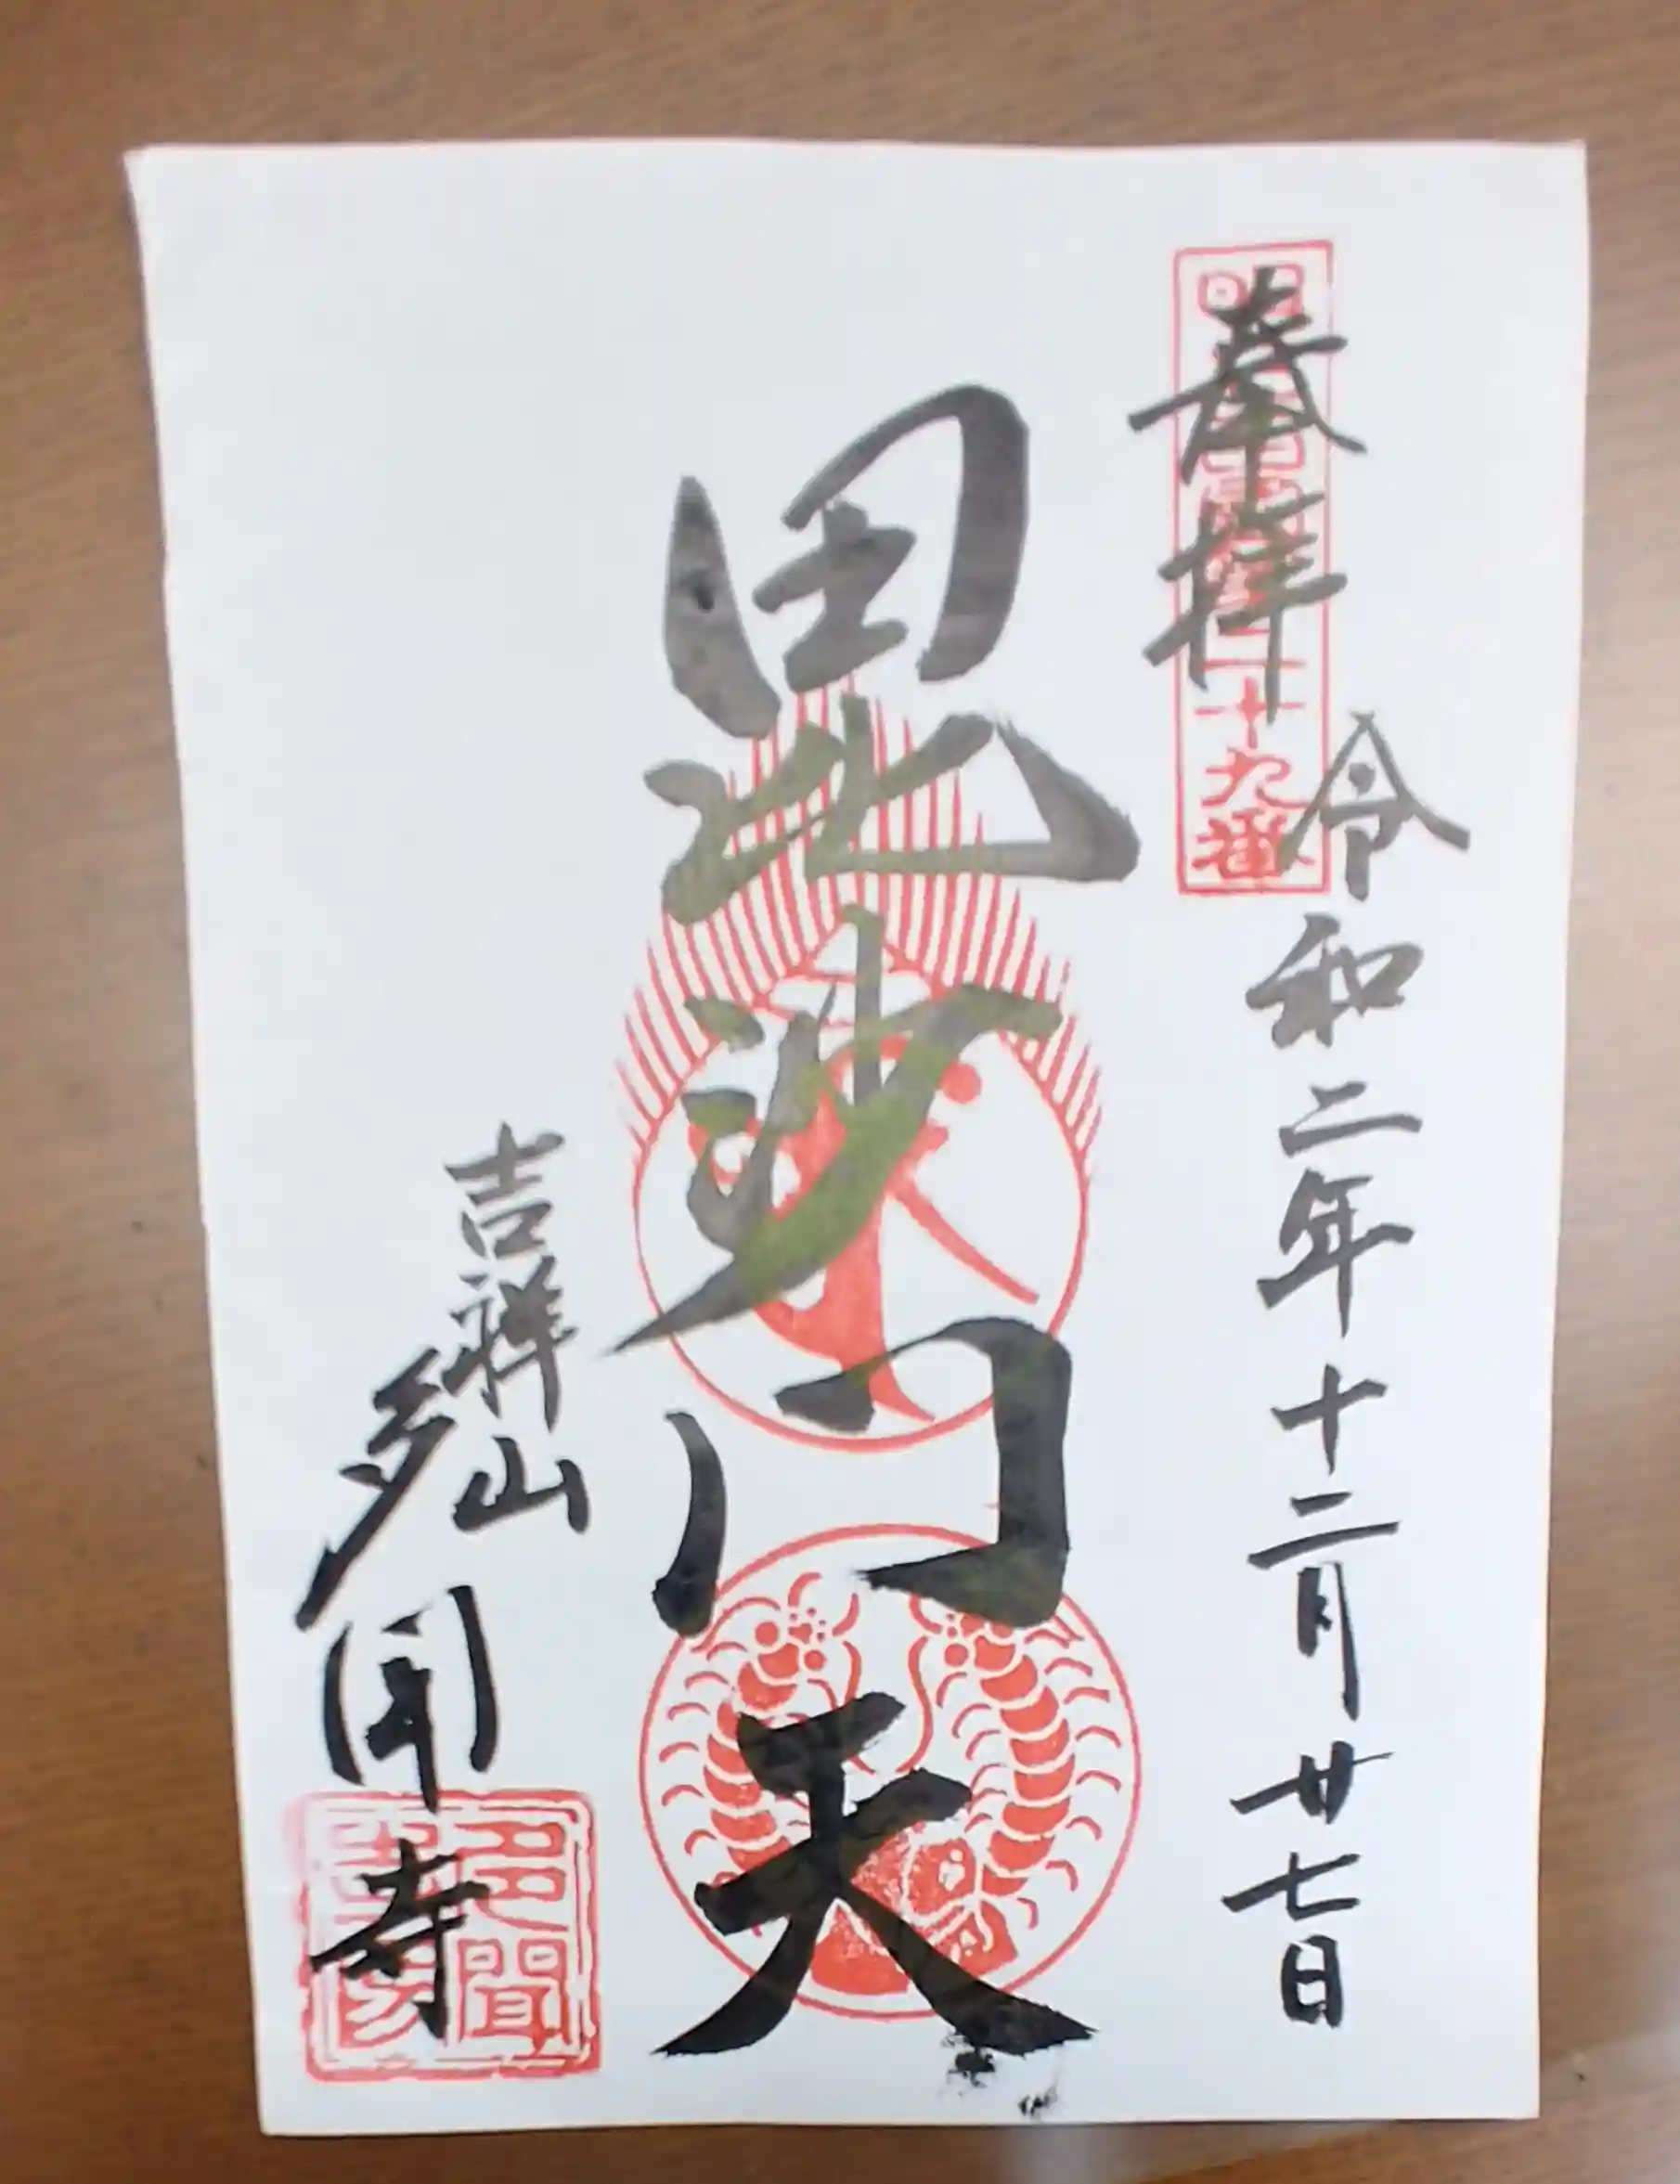 奉拝
令和二年十二月廿七日
毘沙門天
吉祥山
多聞寺
二十九番